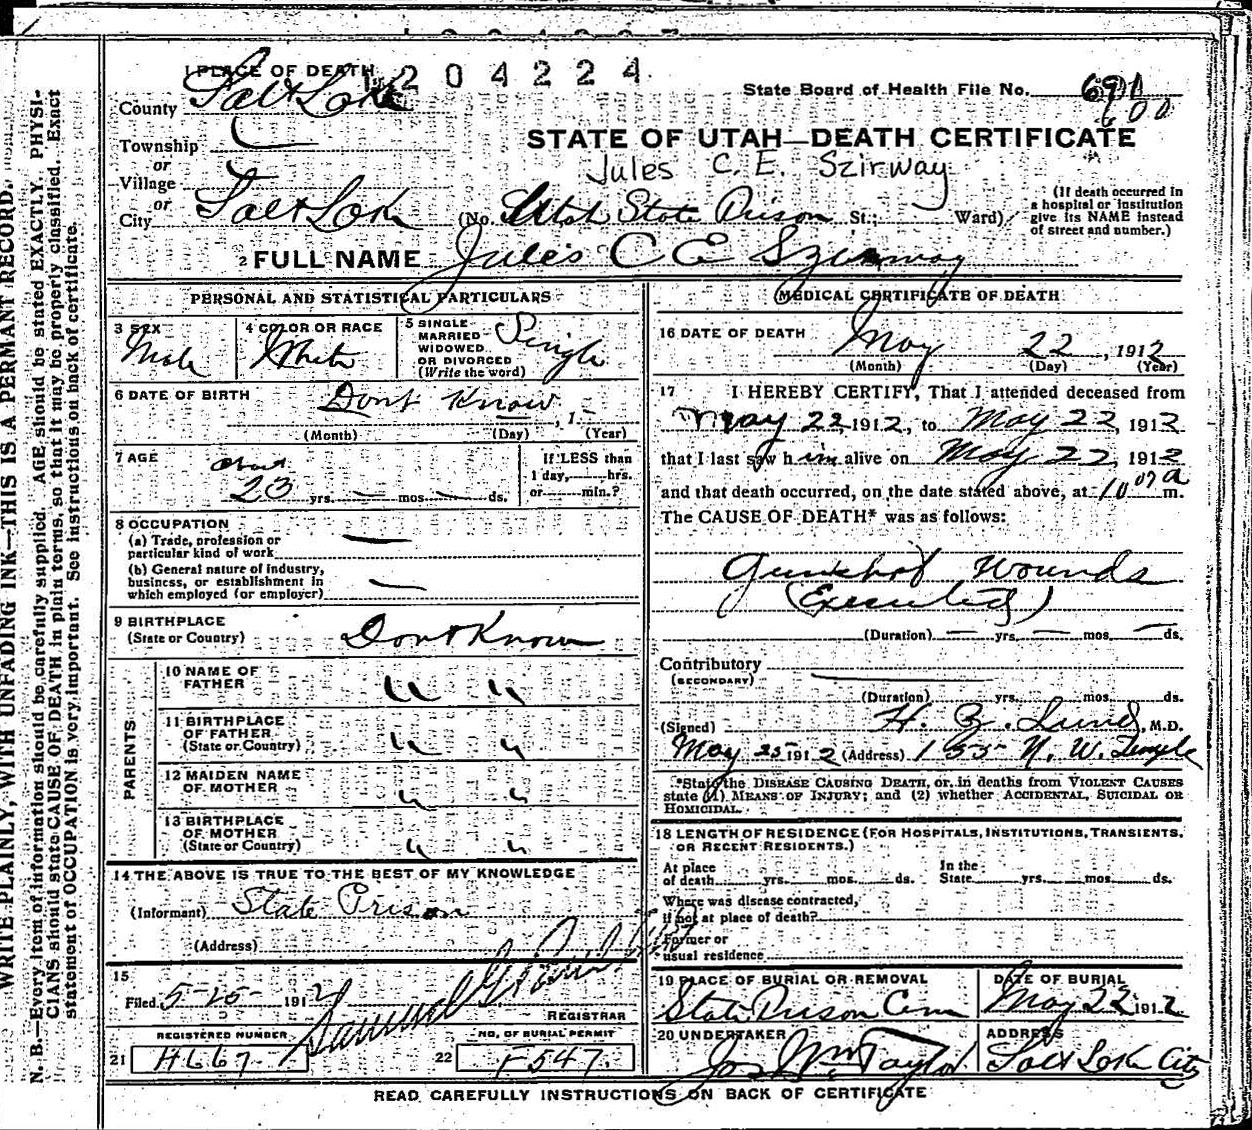 1 PLACE OF DEATH
1204224
County Salt Lake
State Board of Health File No. 691
600
STATE OF UTAH—DEATH CERTIFICATE
Township
or
Village
or
City Salt Lake
Jules C. E. Szirway
(No. Utah State Prison St.; Ward)
(If death occurred in
a hospital or institution
give its NAME instead
of street and number.)
2 FULL NAME Jules C E Szirway
PERSONAL AND STATISTICAL PARTICULARS
3 SEX
Male
4 COLOR OR RACE
White
5 SINGLE
MARRIED
WIDOWED
OR DIVORCED
(Write the word)
Single
6 DATE OF BIRTH Dont Know, 1
(Month) (Day) (Year)
7 AGE
about
23 yrs. — mos. — ds.
If LESS than
1 day, hrs.
or min.?
8 OCCUPATION
(a) Trade, profession or
particular kind of work —
(b) General nature of industry,
business, or establishment in
which employed (or employer) —
9 BIRTHPLACE
(State or Country) Dont Know
PARENTS
10 NAME OF
FATHER " "
11 BIRTHPLACE
OF FATHER
(State or Country) " "
12 MAIDEN NAME
OF MOTHER " "
13 BIRTHPLACE
OF MOTHER
(State or Country) " "
14 THE ABOVE IS TRUE TO THE BEST OF MY KNOWLEDGE
(Informant) State Prison
(Address)
15
Filed 5-25- 1912 Samuel G
REGISTRAR
REGISTERED NUMBER
21 H667
NO. OF BURIAL PERMIT
22 F547
MEDICAL CERTIFICATE OF DEATH
16 DATE OF DEATH
May 22, 1912
(Month) (Day) (Year)
17 I HEREBY CERTIFY, That I attended deceased from
May 22, 1912, to May 22, 1912
that I last saw h im alive on May 22, 1912
and that death occurred, on the date stated above, at 10 07 a m.
The CAUSE OF DEATH* was as follows:
Gunshot Wounds
(Executed)
(Duration) — yrs. — mos. — ds.
Contributory
(SECONDARY)
(Duration) yrs. mos. ds.
(Signed) H. Z. Lund, M.D.
May 25 1912 (Address) 155 N. W. Temple
*State the DISEASE CAUSING DEATH, or, in deaths from VIOLENT CAUSES
state (1) MEANS OF INJURY; and (2) whether ACCIDENTAL, SUICIDAL OR
HOMICIDAL.
18 LENGTH OF RESIDENCE (FOR HOSPITALS, INSTITUTIONS, TRANSIENTS,
OR RECENT RESIDENTS.)
At place
of death yrs. mos. ds.
In the
State yrs. mos. ds.
Where was disease contracted,
if not at place of death?
Former or
usual residence
19 PLACE OF BURIAL OR REMOVAL
State Prison Cem
DATE OF BURIAL
May 22 1912
20 UNDERTAKER
Jos Wm Taylor
ADDRESS
Salt Lake City
READ CAREFULLY INSTRUCTIONS ON BACK OF CERTIFICATE
WRITE PLAINLY, WITH UNFADING INK—THIS IS A PERMANT RECORD.
N. B.—Every item of information should be carefully supplied. AGE should be stated EXACTLY. PHYSI-
CIANS should state CAUSE OF DEATH in plain terms, so that it may be properly classified. Exact
statement of OCCUPATION is very important. See instructions on back of certificate.